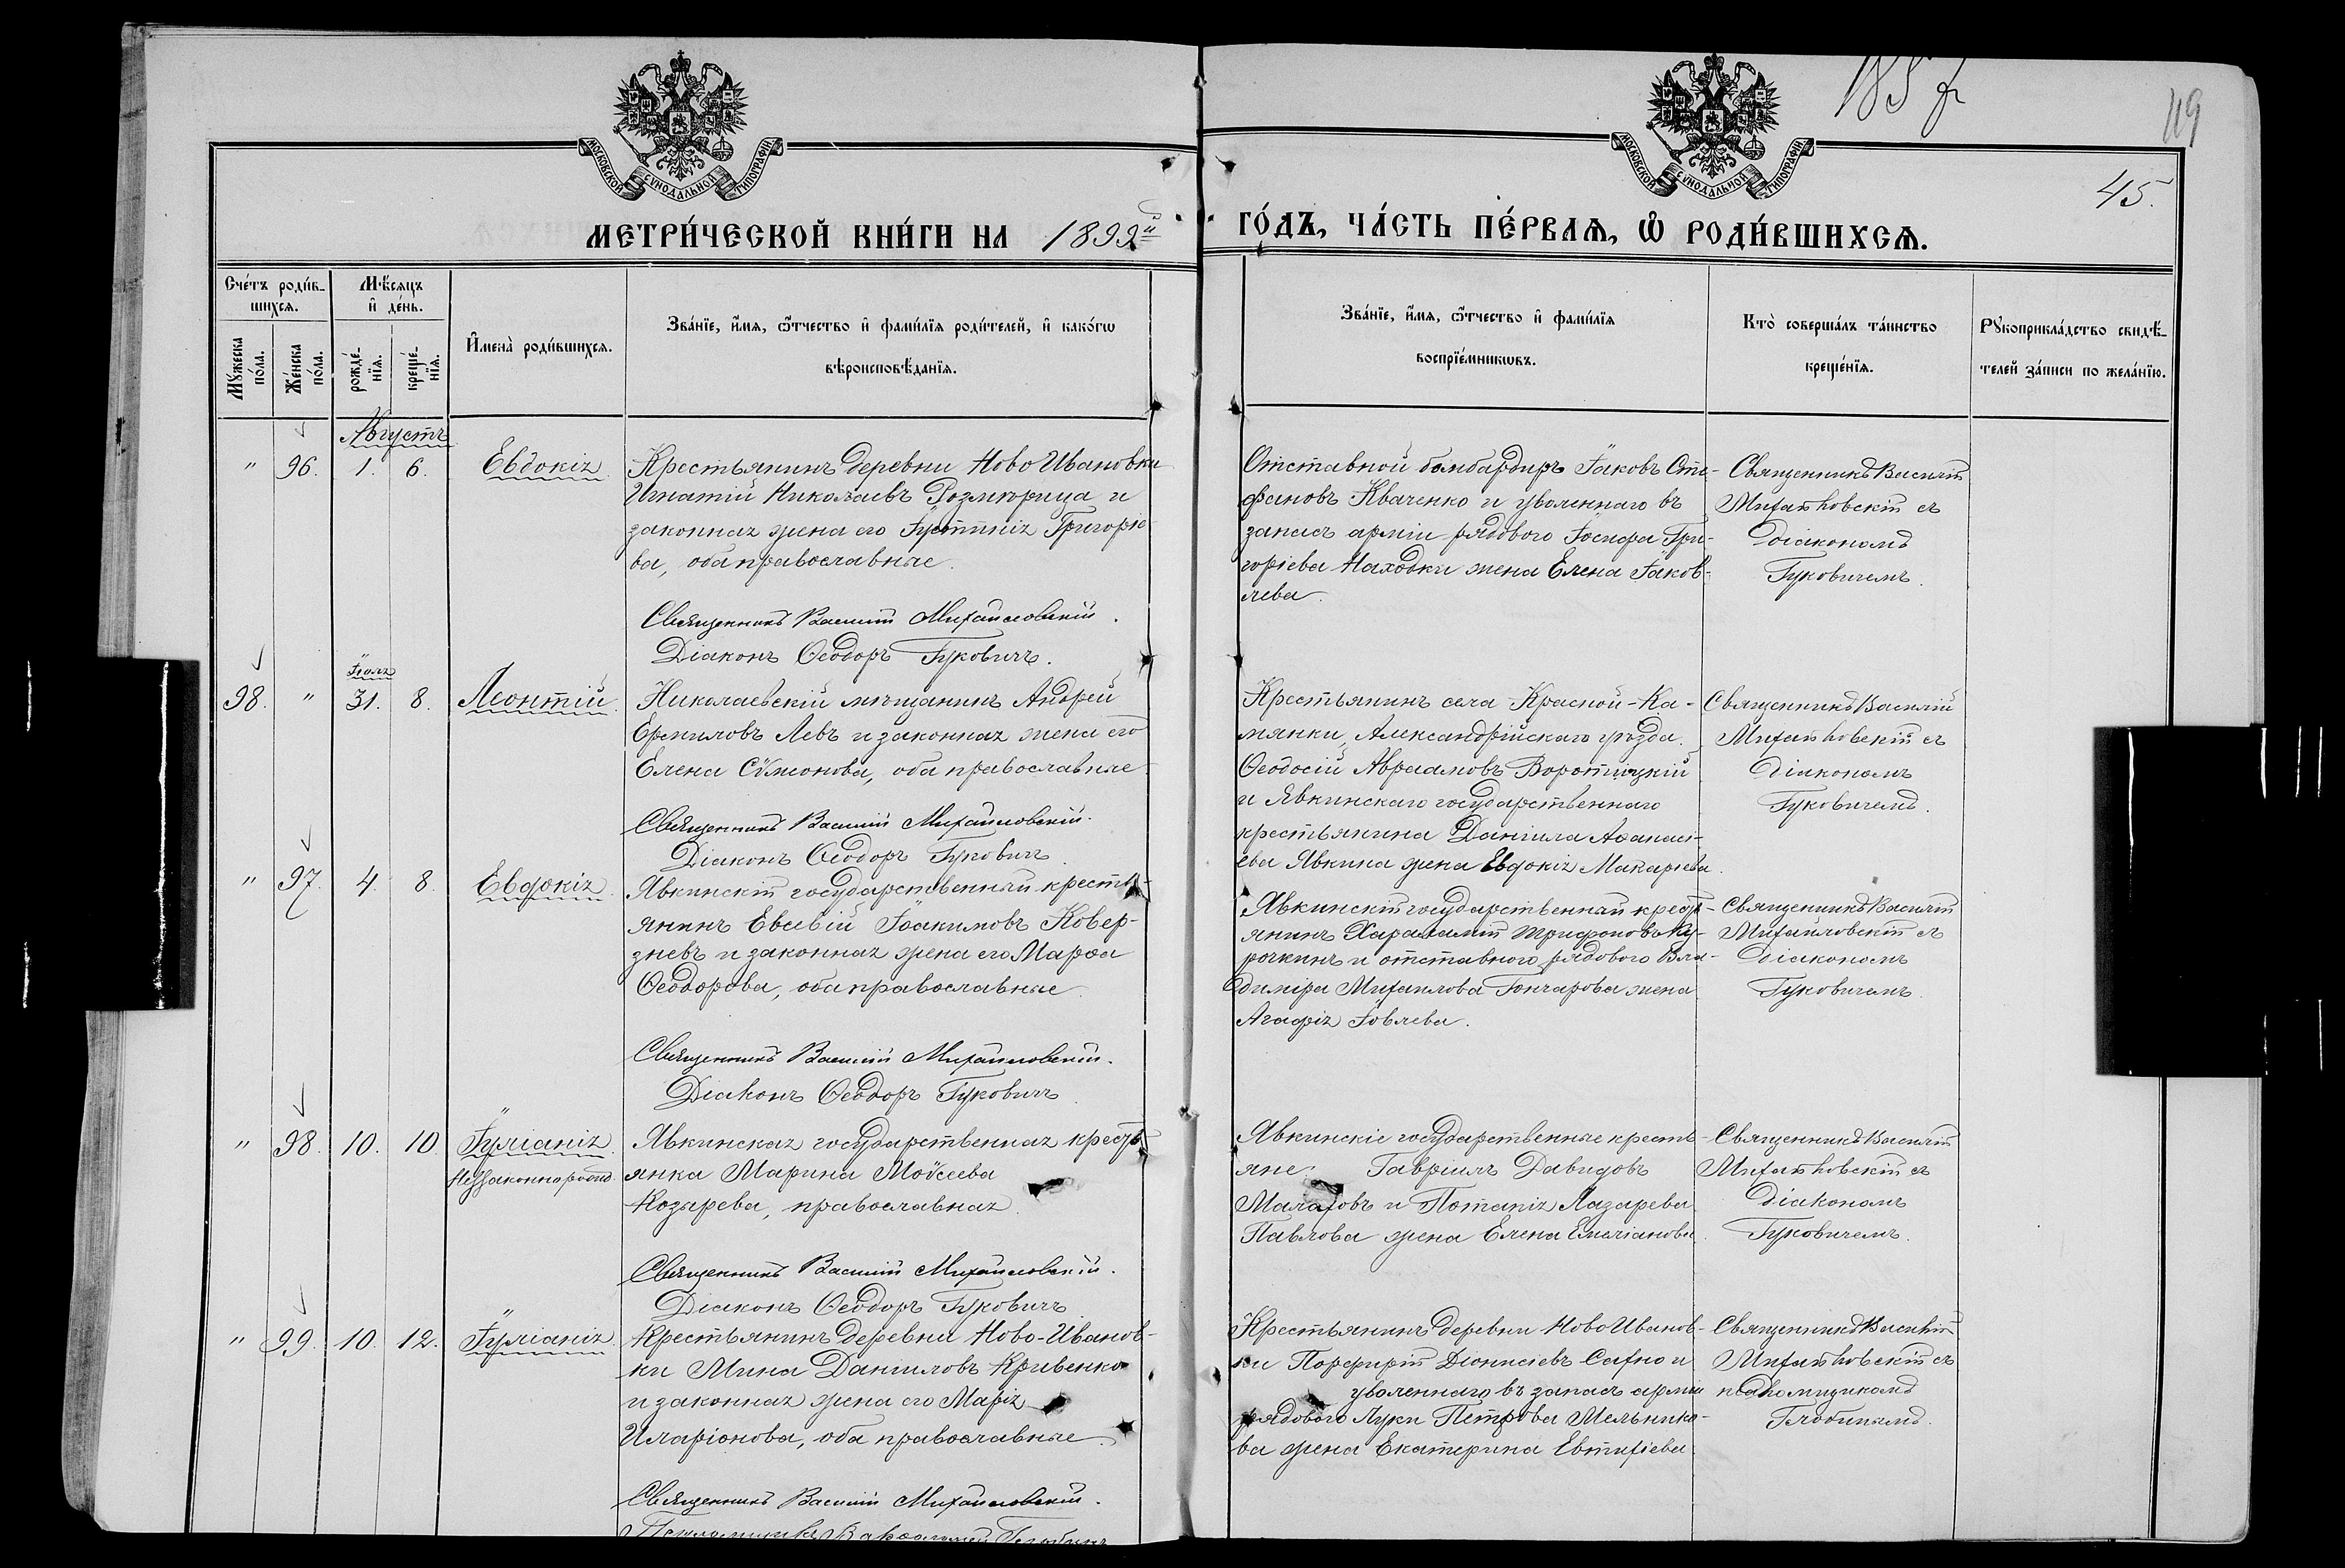 185 г
119
МОСКОВСКОЙ СѴНОДАЛЬНОЙ ТИПОГРАФІИ
МОСКОВСКОЙ СѴНОДАЛЬНОЙ ТИПОГРАФІИ
45.
МЕТРИ́ЧЕСКОЙ КНИ́ГИ НА 1899й
ГО́ДЪ, ЧА́СТЬ ПЕ́РВАѦ, Ѽ РОДИ́ВШИХСѦ.
Сче́тъ роди́в-
шихсѧ.
Мѣ́сѧцъ
и҆ де́нь.
Мꙋ́жеска по́ла.
Же́нска по́ла.
рожде́-нїѧ.
креще́-нїѧ.
И҆мена̀ роди́вшихсѧ.
Зва́нїе, и҆́мѧ, ѻ҆́тчество и҆ фами́лїѧ роди́телей, и҆ како́гѡ
вѣроисповѣ́данїѧ.
Зва́нїе, и҆́мѧ, ѻ҆́тчество и҆ фами́лїѧ
воспрїе́мникѡвъ.
Кто̀ соверша́лъ та́инство
креще́нїѧ.
Рꙋкоприкла́дство свидѣ́-
телей за́писи по жела́нїю.
Августъ
" 96. 1. 6. Евдокія
Крестьянинъ деревни Ново Ивановки
Игнатій Николаевъ Розмюрица и
законная жена его Іустинія Григоріе
ва, оба православные.
Священникъ Василій Михайловскій.
Діаконъ Ѳеодоръ Гуковичъ.
Отставной бомбардиръ Іаковъ Сте-
фановъ Кваченко и уволеннаго въ
запасъ арміи рядового Іосифа Гри-
горіева Находки жена Елена Іаков-
лева.
Священникъ Василій
Михайловскій съ
діакономъ
Гуковичемъ.
Іюль
98. " 31. 8. Леонтій.
Николаевскій мѣщанинъ Андрей
Ермиловъ Левъ и законная жена его
Елена Сѵмеонова, оба православные.
Священникъ Василій Михайловскій.
Діаконъ Ѳеодоръ Гуковичъ.
Крестьянинъ села Красной-Ка-
мянки, Александрійскаго уѣзда.
Ѳеодосій Авраамовъ Воротницкій
и Явкинскаго государственнаго
крестьянина Даніила Аѳанасі-
ева Явкина жена Евдокія Макаріева.
Священникъ Василій
Михайловскій съ
діакономъ
Гуковичемъ.
" 97. 4. 8. Евдокія.
Явкинскій государственный кресть-
янинъ Евсевій Іоакимовъ Ковер-
зневъ и законная жена его Марѳа
Ѳеодорова, оба православные.
Священникъ Василій Михайловскій.
Діаконъ Ѳеодоръ Гуковичъ.
Явкинскій государственный крест-
янинъ Харалампій Трифоновъ Ку-
рочкинъ и отставного рядового Вла-
диміра Михаилова Гончарова жена
Агафія Іовлева.
Священникъ Василій
Михайловскій съ
діакономъ
Гуковичемъ.
" 98. 10. 10. Іуліанія.
Незаконнорожд.
Явкинская государственная кресть-
янка Марина Моѵсеева
Козырева, православная.
Священникъ Василій Михайловскій.
Діаконъ Ѳеодоръ Гуковичъ.
Явкинскіе государственные кресть-
яне: Гавріилъ Давидовъ
Малаховъ и Потапія Лазарева
Павлова жена Елена Емеліанова.
Священникъ Василій
Михайловскій съ
діакономъ
Гуковичемъ.
" 99. 10. 12. Іуліанія.
Крестьянинъ деревни Ново-Иванов-
ки Мина Даниловъ Кривенко
и законная жена его Марія
Иларіонова, оба православные.
Священникъ Василій Михайловскій.
Крестьянинъ деревни Ново Иванов-
ки Порфирій Діонисіевъ Сахно и
уволеннаго въ запасъ арміи
рядового Луки Петрова Мельнико-
ва жена Екатерина Евтихіева.
Священникъ Василій
Михайловскій съ
псаломщикомъ
Глобинымъ.